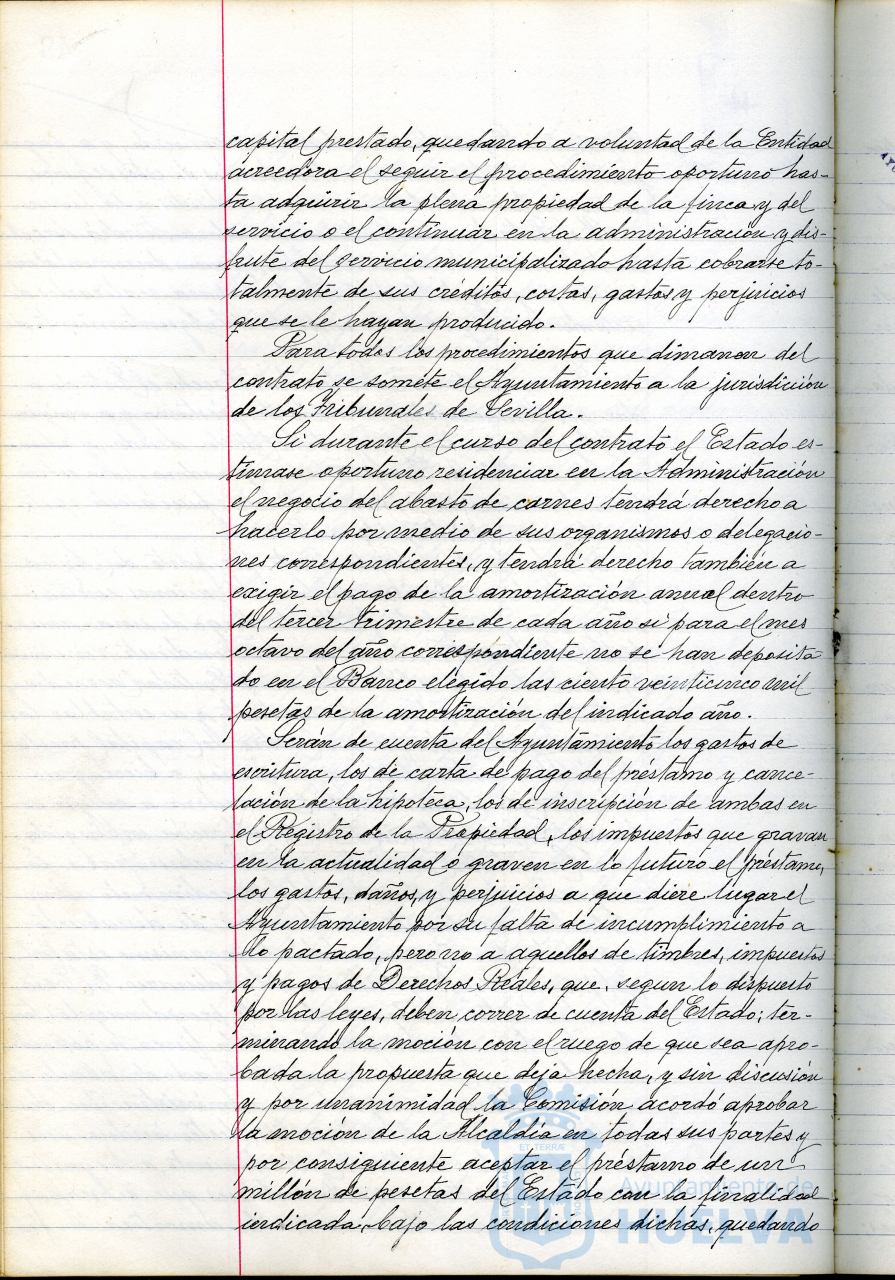 capital prestado, quedando a voluntad de la Entidad
acreedora el seguir el procedimiento oportuno has-
ta adquirir la plena propiedad de la finca y del
servicio o el continuar en la administración y dis-
frute del servicio municipalizado hasta cobrarse to-
talmente de sus créditos, costas, gastos y perjuicios
que se le hayan producido.
Para todos los procedimientos que dimanen del
contrato se somete el Ayuntamiento a la jurisdición
de los Tribunales de Sevilla.
Si durante el curso del contrato el Estado es-
timase oportuno residenciar en la Administración
el negocio del abasto de carnes tendrá derecho a
hacerlo por medio de sus organismos o delegacio-
nes correspondientes, y tendrá derecho también a
exigir el pago de la amortización anual dentro
del tercer trimestre de cada año si para el mes
octavo del año correspondiente no se han deposita
do en el Banco elegido las ciento veinticinco mil
pesetas de la amortización del indicado año.
Serán de cuenta del Ayuntamiento los gastos de
escritura, los de carta de pago del préstamo y cance-
lación de la hipoteca, los de inscripción de ambas en
el Registro de la Propiedad, los impuestos que gravan
en la actualidad o graven en lo futuro el préstamo,
los gastos, daños, y perjuicios a que diere lugar el
Ayuntamiento por su falta de incumplimiento a
lo pactado, pero no a aquellos de timbres, impuestos
y pagos de Derechos Reales, que, segun lo dispuesto
por las leyes, deben correr de cuenta del Estado; ter-
minando la moción con el ruego de que sea apro-
bada la propuesta que deja hecha, y sin discusión
y por unanimidad la Comisión acordó aprobar
la moción de la Alcaldía en todas sus partes y
por consiguiente aceptar el préstamo de un
millón de pesetas del Estado con la finalidad
indicada, bajo las condiciones dichas, quedando
Ayuntamiento de
HUELVA